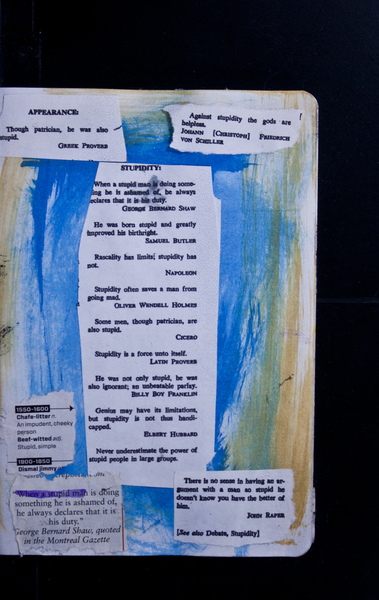 APPEARANCE:
Though patrician, he was also
stupid.
GREEK PROVERB
Against stupidity the gods are
helpless.
JOHANN [CHRISTOPH] FRIEDRICH
VON SCHILLER
STUPIDITY:
When a stupid man is doing some-
thing he is ashamed of, he always
declares that it is his duty.
GEORGE BERNARD SHAW
He was born stupid and greatly
improved his birthright.
SAMUEL BUTLER
Rascality has limits; stupidity has
not.
NAPOLEON
Stupidity often saves a man from
going mad.
OLIVER WENDELL HOLMES
Some men, though patrician, are
also stupid.
CICERO
Stupidity is a force unto itself.
LATIN PROVERB
He was not only stupid, he was
also ignorant; an unbeatable parlay.
BILLY BOY FRANKLIN
Genius may have its limitations,
but stupidity is not thus handi-
capped.
ELBERT HUBBARD
Never underestimate the power of
stupid people in large groups.
1550-1600
Chafe-litter n.
An impudent, cheeky
person
Beef-witted adj.
Stupid, simple
1800-1850
Dismal jimmy
"When a stupid man is doing
something he is ashamed of,
he always declares that it is
his duty."
George Bernard Shaw, quoted
in the Montreal Gazette
There is no sense in having an ar-
gument with a man so stupid he
doesn't know you have the better of
him.
JOHN RAPER
[See also Debate, Stupidity]